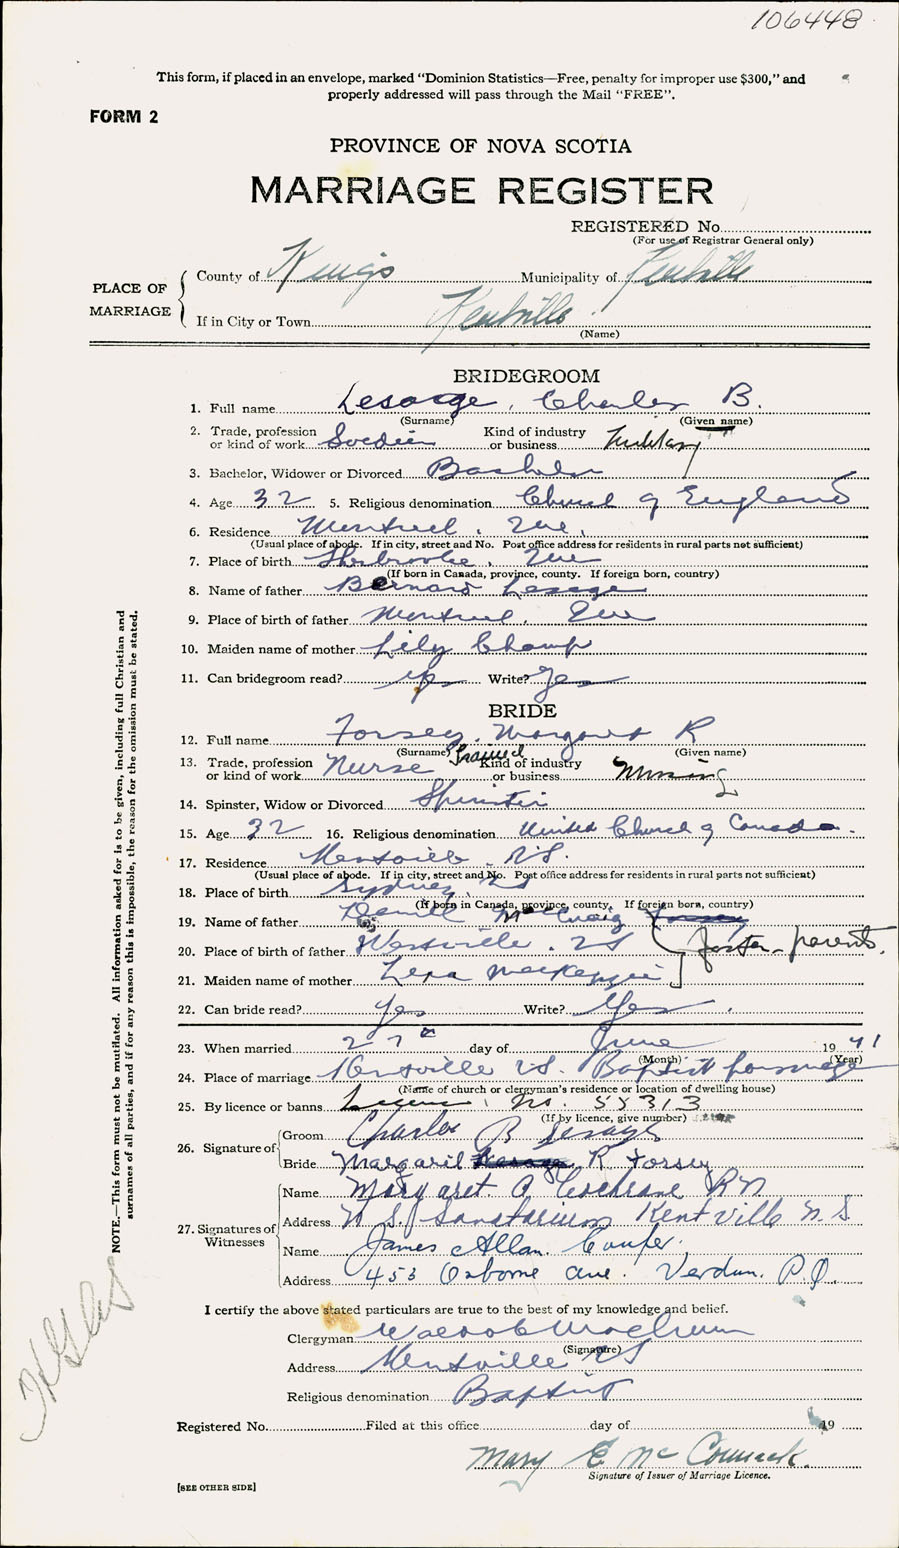 106448
This form, if placed in an envelope, marked "Dominion Statistics—Free, penalty for improper use $300," and
properly addressed will pass through the Mail "FREE".
FORM 2
PROVINCE OF NOVA SCOTIA
MARRIAGE REGISTER
REGISTERED No.
(For use of Registrar General only)
PLACE OF MARRIAGE
County of Kings Municipality of Kentville
If in City or Town Kentville
(Name)
BRIDEGROOM
1. Full name Lesage, Charles B.
(Surname) (Given name)
2. Trade, profession or kind of work Soldier Kind of industry or business Military
3. Bachelor, Widower or Divorced Bachelor
4. Age 32 5. Religious denomination Church of England
6. Residence Montreal, Que.
(Usual place of abode. If in city, street and No. Post office address for residents in rural parts not sufficient)
7. Place of birth Sherbrooke, Que
(If born in Canada, province, county. If foreign born, country)
8. Name of father Bernard Lesage
9. Place of birth of father Montreal, Que
10. Maiden name of mother Lily Champ
11. Can bridegroom read? yes Write? Yes
BRIDE
12. Full name Forsey, Margaret R
(Surname) (Given name)
13. Trade, profession or kind of work Nurse Trained Kind of industry or business Nursing
14. Spinster, Widow or Divorced Spinster
15. Age 32 16. Religious denomination United Church of Canada.
17. Residence Kentville, N.S.
(Usual place of abode. If in city, street and No. Post office address for residents in rural parts not sufficient)
18. Place of birth Sydney, NS
(If born in Canada, province, county. If foreign born, country)
19. Name of father Forsey
20. Place of birth of father Westville, NS foster-parents
21. Maiden name of mother Lena MacKenzie
22. Can bride read? Yes Write? Yes
23. When married 27th day of June 1941
(Month) (Year)
24. Place of marriage Kentville N.S. Baptist parsonage
(Name of church or clergyman's residence or location of dwelling house)
25. By licence or banns License, No. 55313
(If by licence, give number)
26. Signature of
Groom Charles B Lesage
Bride Margaret Lesage R Forsey
27. Signatures of Witnesses
Name Margaret A Cochrane RN
Address N.S. Sanatorium Kentville N.S
Name James Allan Couper.
Address 453 Osborne Ave. Verdun. P.Q.
I certify the above stated particulars are true to the best of my knowledge and belief.
Clergyman
(Signature)
Address Kentville NS
Religious denomination Baptist
Registered No. Filed at this office day of 19
Mary E McCormack.
Signature of Issuer of Marriage Licence.
[SEE OTHER SIDE]
NOTE.—This form must not be mutilated. All information asked for is to be given, including full Christian and
surnames of all parties, and if for any reason this is impossible, the reason for the omission must be stated.